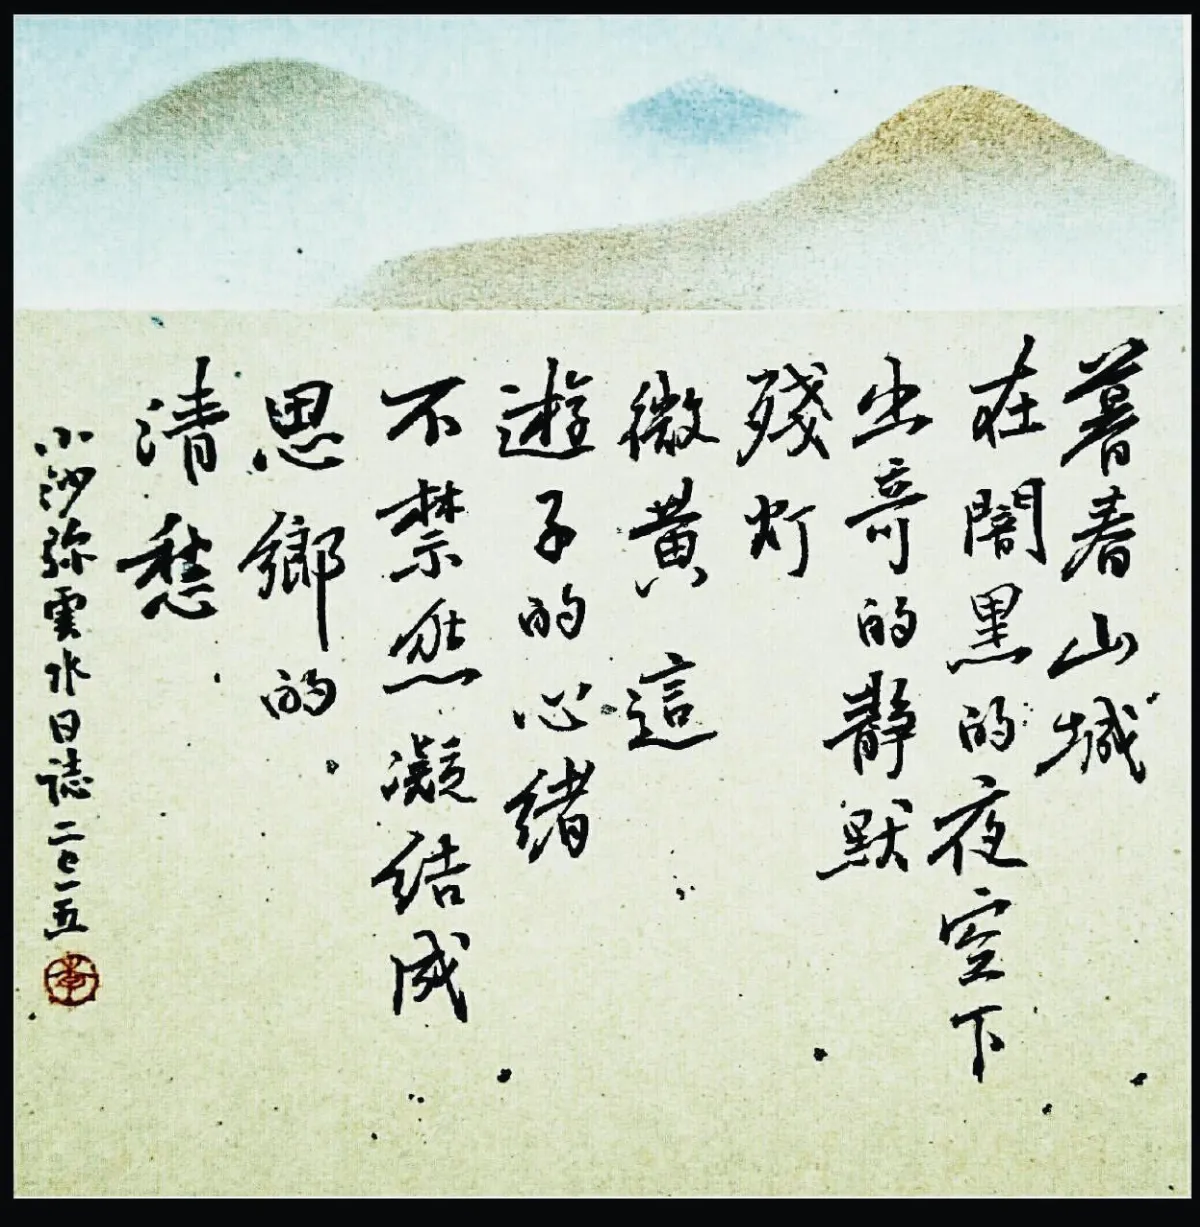 暮春山城
在闇黑的夜空下
出奇的靜默
殘灯
微黃 這
遊子的心緒
不禁然凝結成
思鄉的
清愁
小沙弥雲水日誌二〇一五